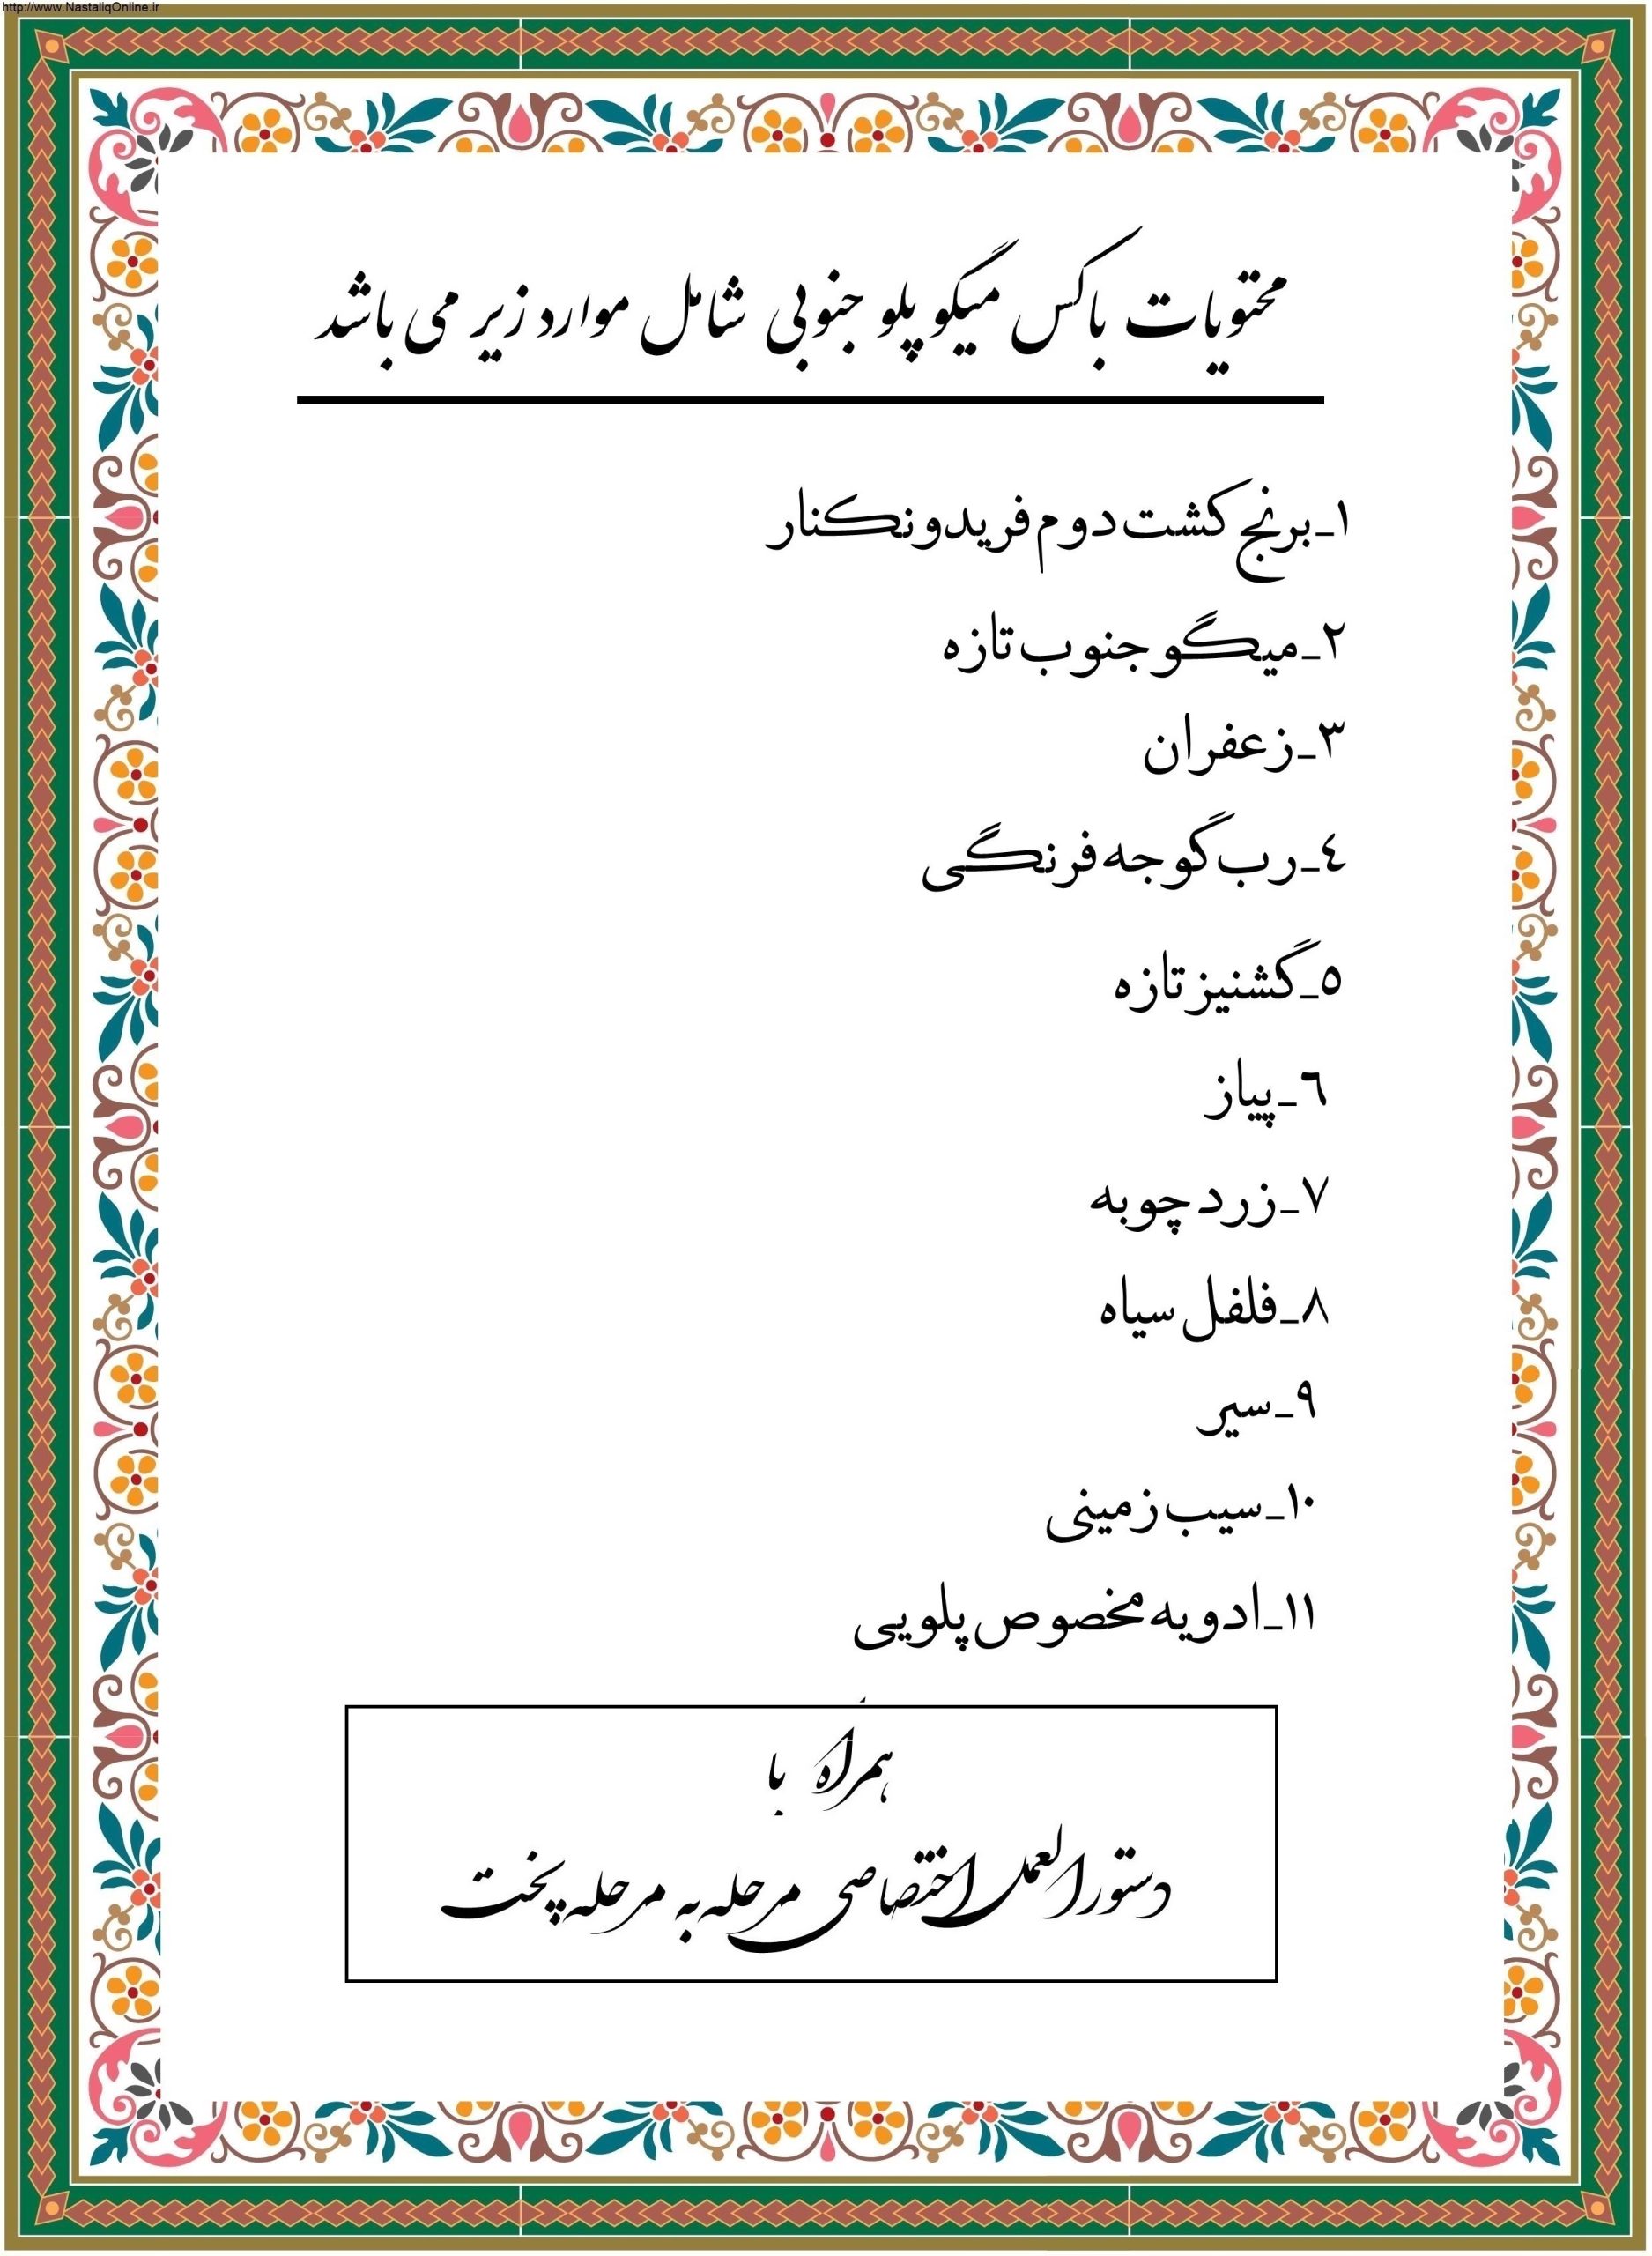 http://www.NastaliqOnline.ir
محتویات باکس میگو پلو جنوبی شامل موارد زیر می باشد
۱ـ برنج کشت دوم فریدونکنار
۲ـ میگو جنوب تازه
۳ـ زعفران
٤ـ رب گوجه فرنگی
۵ـ گشنیز تازه
٦ـ پیاز
۷ـ زردچوبه
۸ـ فلفل سیاه
۹ـ سیر
۱۰ـ سیب زمینی
۱۱ـ ادویه مخصوص پلویی
همراه با
دستورالعمل اختصاصی مرحله به مرحله پخت